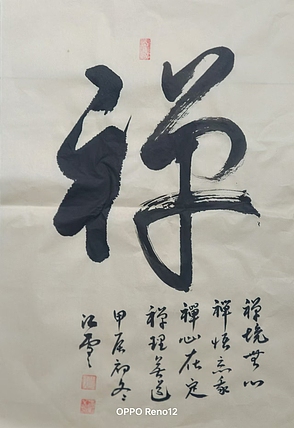 禅
禅境無心
禅悟忘我
禅心在定
禅理善道
甲辰初冬
江雪
OPPO Reno12